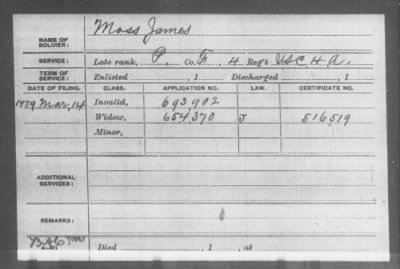 NAME OF SOLDIER: Moss James
SERVICE: Late rank, P. Co. F. 4 Reg't U.S.C.H.A.
TERM OF SERVICE: Enlisted , 1 Discharged , 1
DATE OF FILING. CLASS. APPLICATION NO. LAW. CERTIFICATE NO.
1889, Mar, 14 Invalid, 693,902
Widow, 654,370 J 516,519
Minor,
ADDITIONAL SERVICES:
REMARKS:
Died , 1 , at